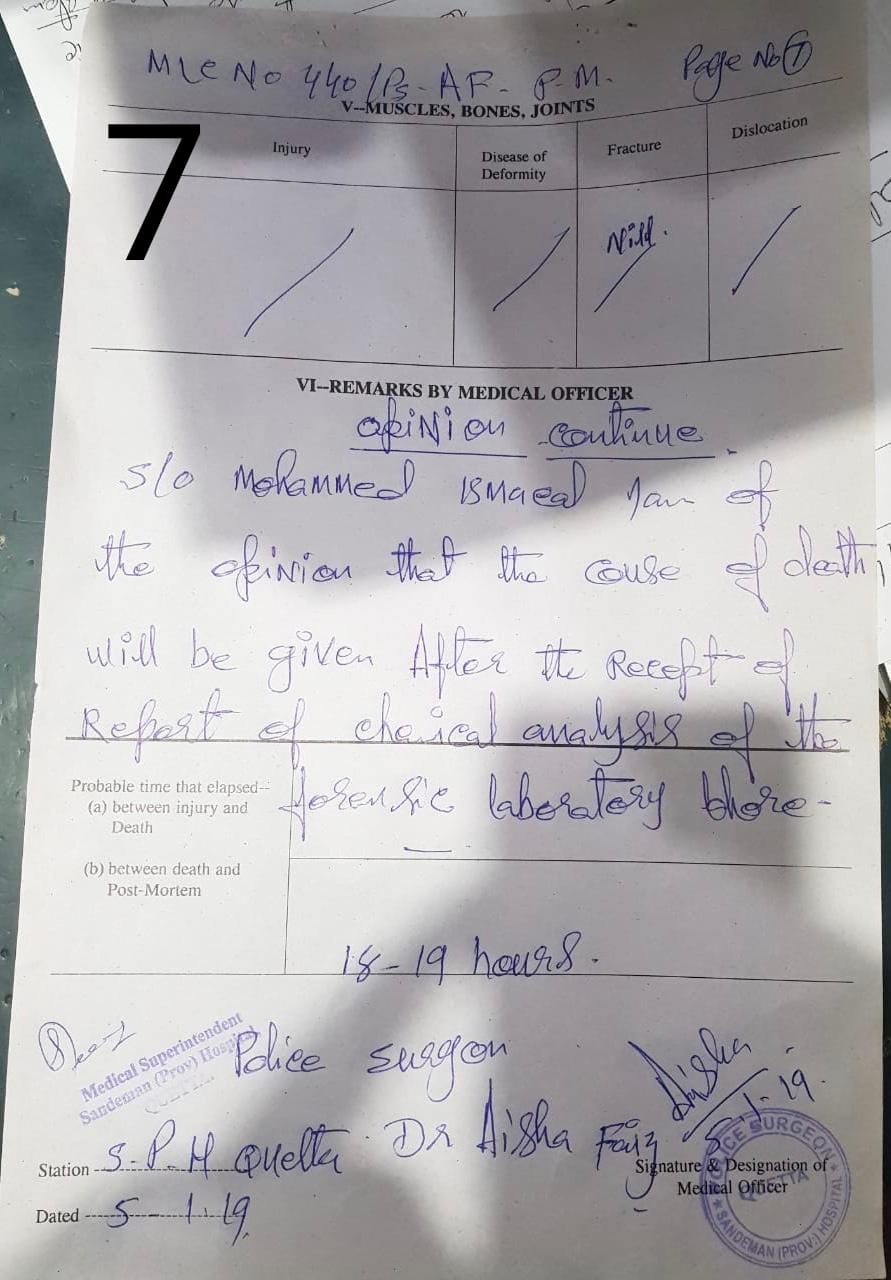 MLC No 440/Ps-AF- P.M. Page No 7
V--MUSCLES, BONES, JOINTS
7
Injury
Disease of
Deformity
Fracture
Dislocation
Nill.
VI--REMARKS BY MEDICAL OFFICER
opinion continue.
S/o Mohammed Ismaeal I am of
the opinion that the couse of death
will be given After the Recept of
Report of cheical analysis of the
forensic laboratory
Probable time that elapsed--
(a) between injury and
Death
(b) between death and
Post-Mortem
18-19 hours.
Medical Superintendent
Sandeman (Prov) Hospital
QUETTA
Police surgeon
Aisha
5-1-19.
Station S.P.H Quetta Dr Aisha Faiz
Signature & Designation of
Medical Officer
Dated 5-1-19
POLICE SURGEON
QUETTA
SANDEMAN (PROV:) HOSPITAL